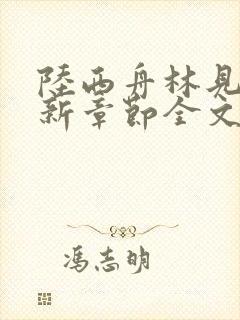 陸西舟林見
新章節全文
馮志明